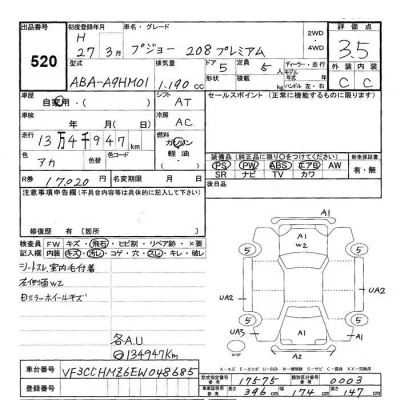 出品番号 初度登録年月 車名・グレード 2WD 評価点
520 H 27 3月 プジョー 208プレミアム ・4WD 3.5
型式 排気量 ドア 定員 ディーラー・並行 外装 内装
ABA-A9HM01 1,190cc 5 5人 ハンドル 左・右 C C
車歴 自家用・( ) シフト AT セールスポイント (正常に機能するものに限ります)
車検 年 月 日 冷房 AC
走行 13万4千947km 燃料 ガソリン
色 アカ 色替 色コード 軽油・
R券 17,020円 名変期限 月 日
装備品 (純正品に限り○をつけてください) 新車保証書
PS PW ABS エアB AW 有・無
SR ナビ TV カワ
注意事項申告欄(不具合内容等は具体的に記入して下さい) 後日品
修復歴 有 [箇所 ]
検査員 FW キズ・飛石・ヒビ割・リペア跡・×要
記入欄 内装 キズ・汚レ・コゲ・穴・スレ・キレ・破レ
シートスレ、室内毛付着
左側面W2
ホイールキズ
各A.U
134947Km
A1
A1
W2
UA2
UA2
UA3
A1
車台番号 VF3CCHMZ6EW048685
登録番号
型式指定番号 17575 類別区分番号 0003
長さ 396cm 幅 174cm 高さ 147cm